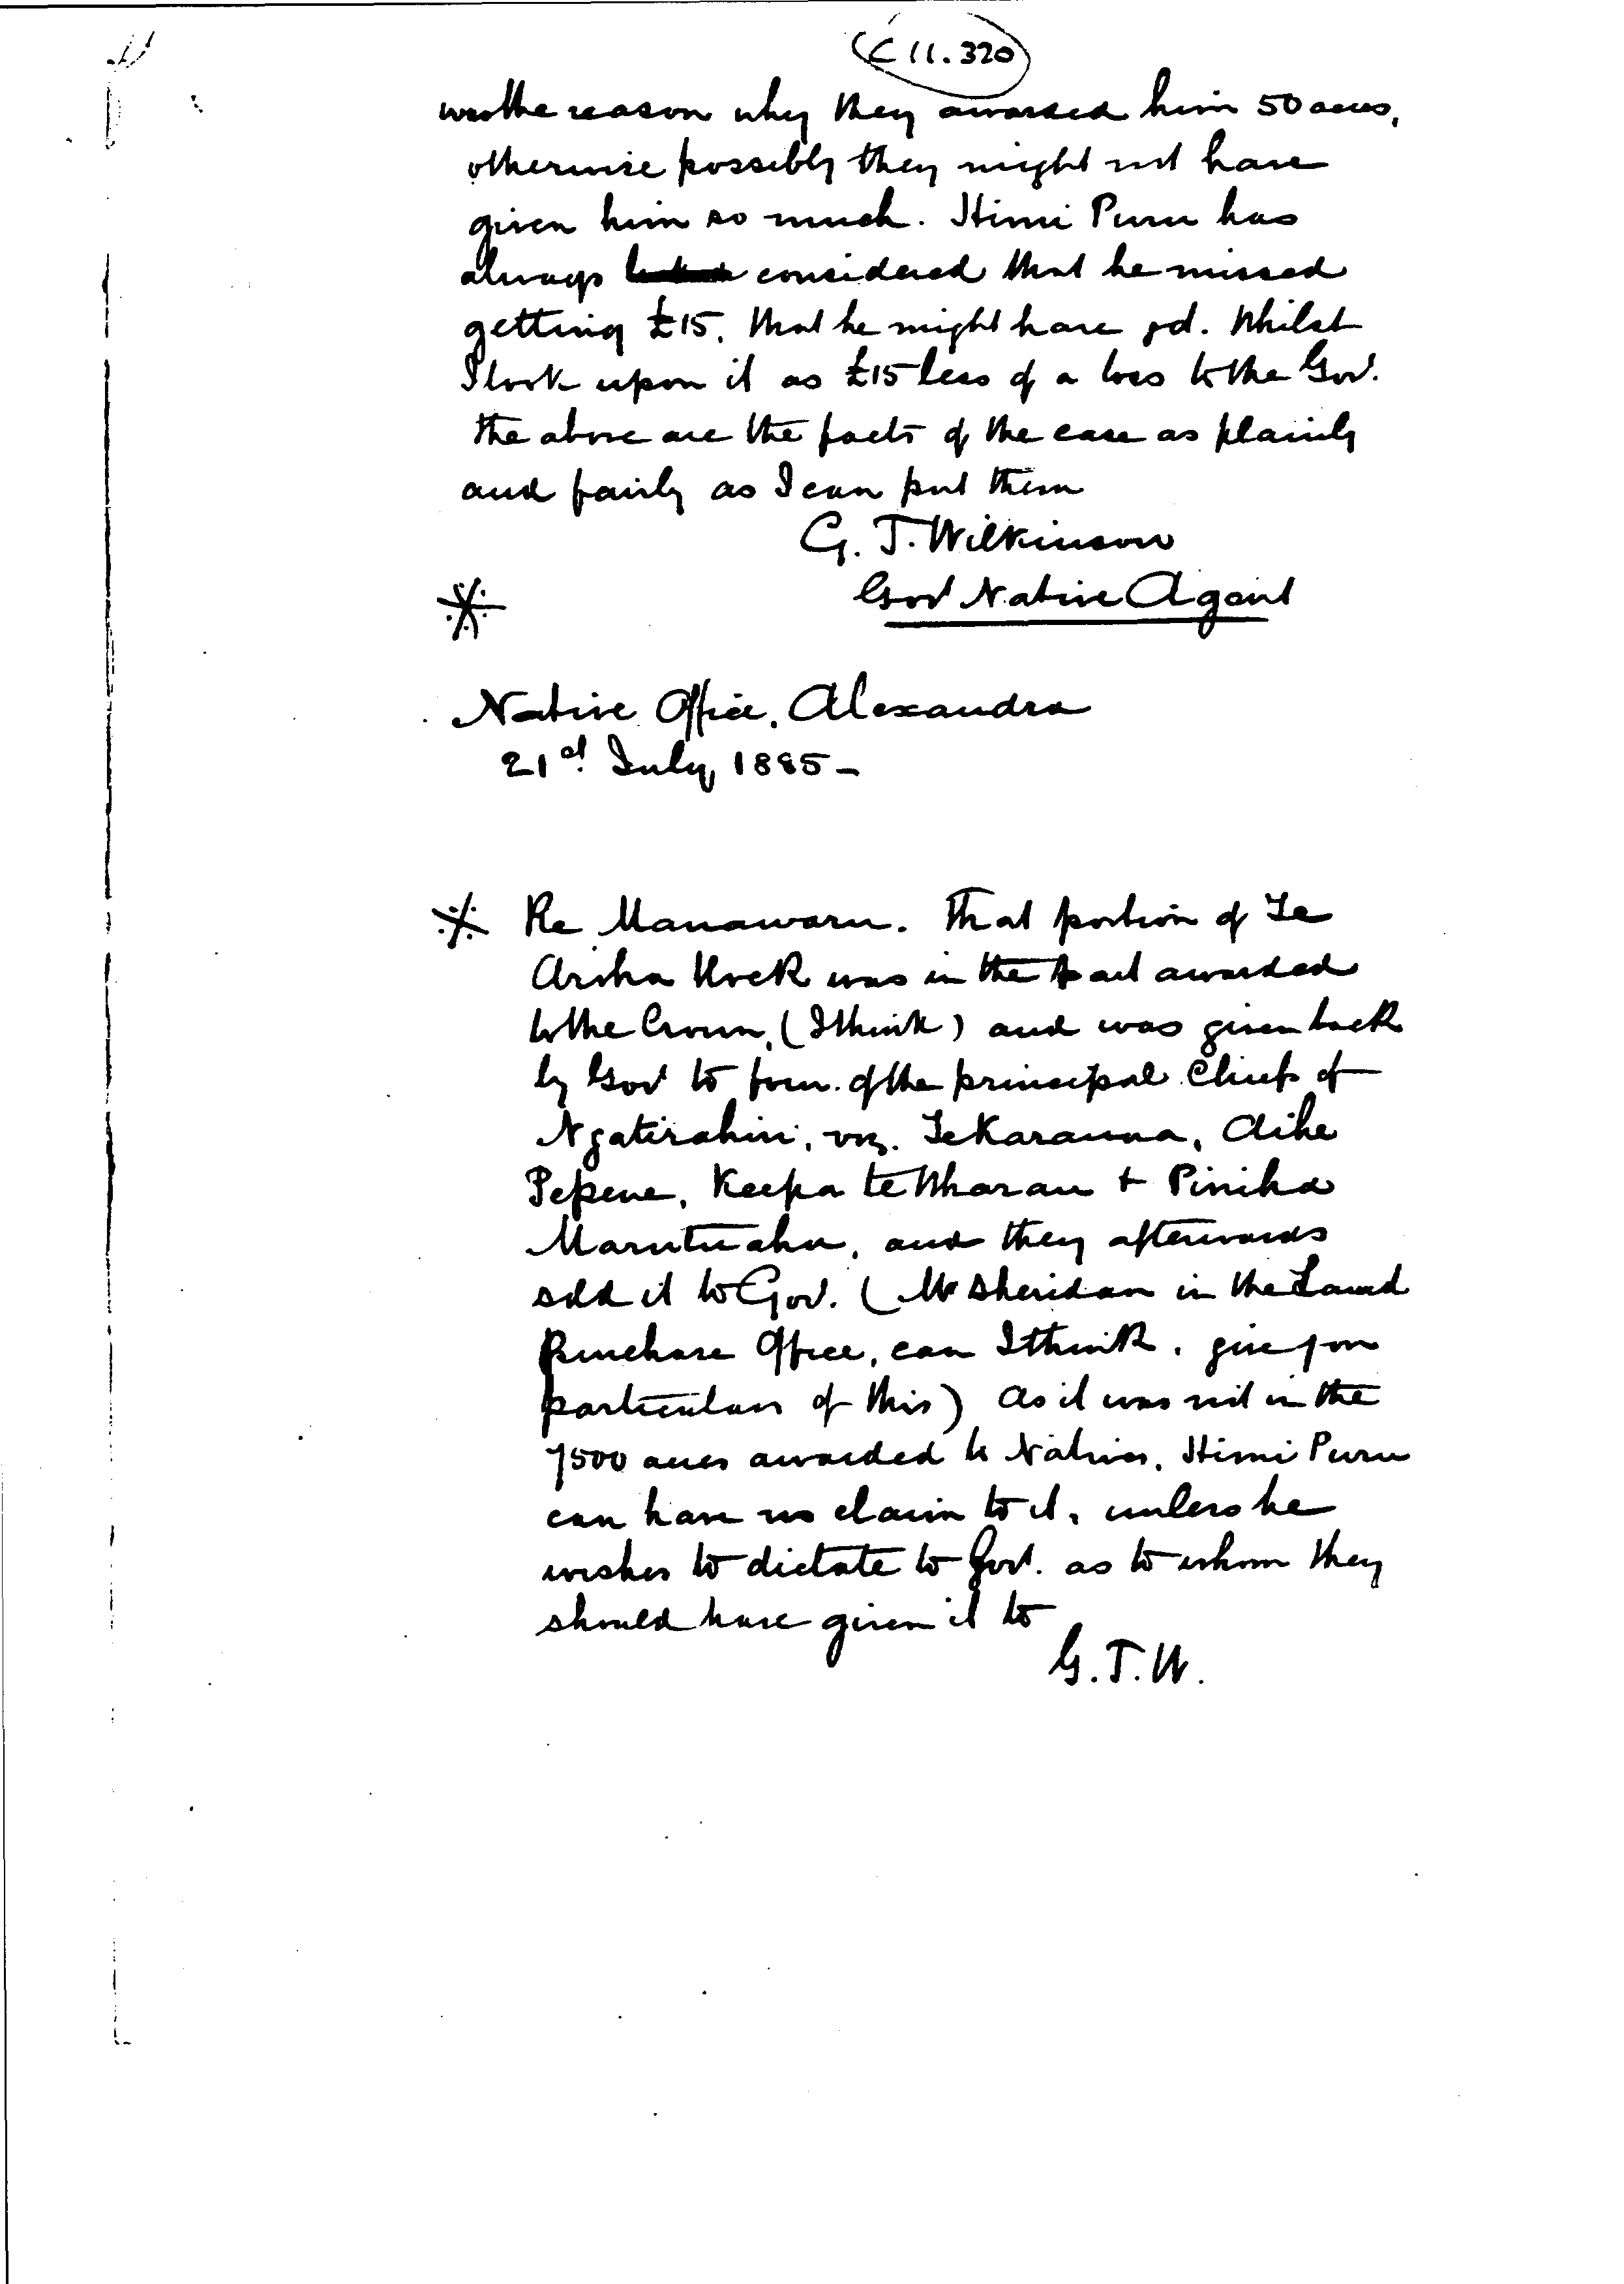 C 11.320
was the reason why they awarded him 50 acres,
otherwise possibly they might not have
given him so much. Himi Puru has
always considered that he missed
getting £15, that he might have gd. Whilst
I look upon it as £15 less of a loss to the Gov.
the above are the facts of the case as plainly
and fairly as I can put them
G. T. Wilkinson
Govt Native Agent
Native Office, Alexandra
21st July, 1885 -
Re Manawaru. That portion of Te
Aroha Block was in the part awarded
to the Crown, (I think) and was given back
by Govt to four of the principal Chiefs of
Ngatirahiri, viz. Te Karauna, Aihe
Pepene, Keepa te Wharau + Piniha
Marutuahu, and they afterwards
sold it to Gov. (Mr Sheridan in the Land
Purchase Office, can I think, give you
particulars of this) As it was not in the
7500 acres awarded to Natives, Himi Puru
can have no claim to it, unless he
wishes to dictate to Govt. as to whom they
should have given it to
G. T. W.